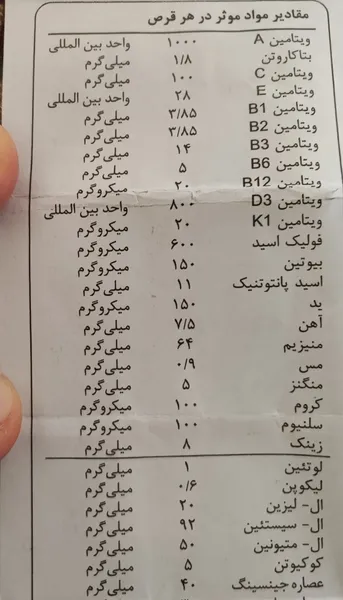 مقادیر مواد موثر در هر قرص
ویتامین A ۱۰۰۰ واحد بین المللی
بتاکاروتن ۱/۸ میلی‌گرم
ویتامین C ۱۰۰ میلی‌گرم
ویتامین E ۲۸ واحد بین المللی
ویتامین B1 ۳/۸۵ میلی‌گرم
ویتامین B2 ۳/۸۵ میلی‌گرم
ویتامین B3 ۱۴ میلی‌گرم
ویتامین B6 ۵ میلی‌گرم
ویتامین B12 ۲۰ میکروگرم
ویتامین D3 ۸۰۰ واحد بین المللی
ویتامین K1 ۲۰ میکروگرم
فولیک اسید ۶۰۰ میکروگرم
بیوتین ۱۵۰ میکروگرم
اسید پانتوتنیک ۱۱ میلی‌گرم
ید ۱۵۰ میکروگرم
آهن ۷/۵ میلی‌گرم
منیزیم ۶۴ میلی‌گرم
مس ۰/۹ میلی‌گرم
منگنز ۵ میلی‌گرم
کروم ۱۰۰ میکروگرم
سلنیوم ۱۰۰ میکروگرم
زینک ۸ میلی‌گرم
لوتئین ۱ میلی‌گرم
لیکوپن ۰/۶ میلی‌گرم
ال- لیزین ۲۰ میلی‌گرم
ال- سیستئین ۹۲ میلی‌گرم
ال- متیونین ۵۰ میلی‌گرم
کوکیوتن ۵ میلی‌گرم
عصاره جینسینگ ۴۰ میلی‌گرم